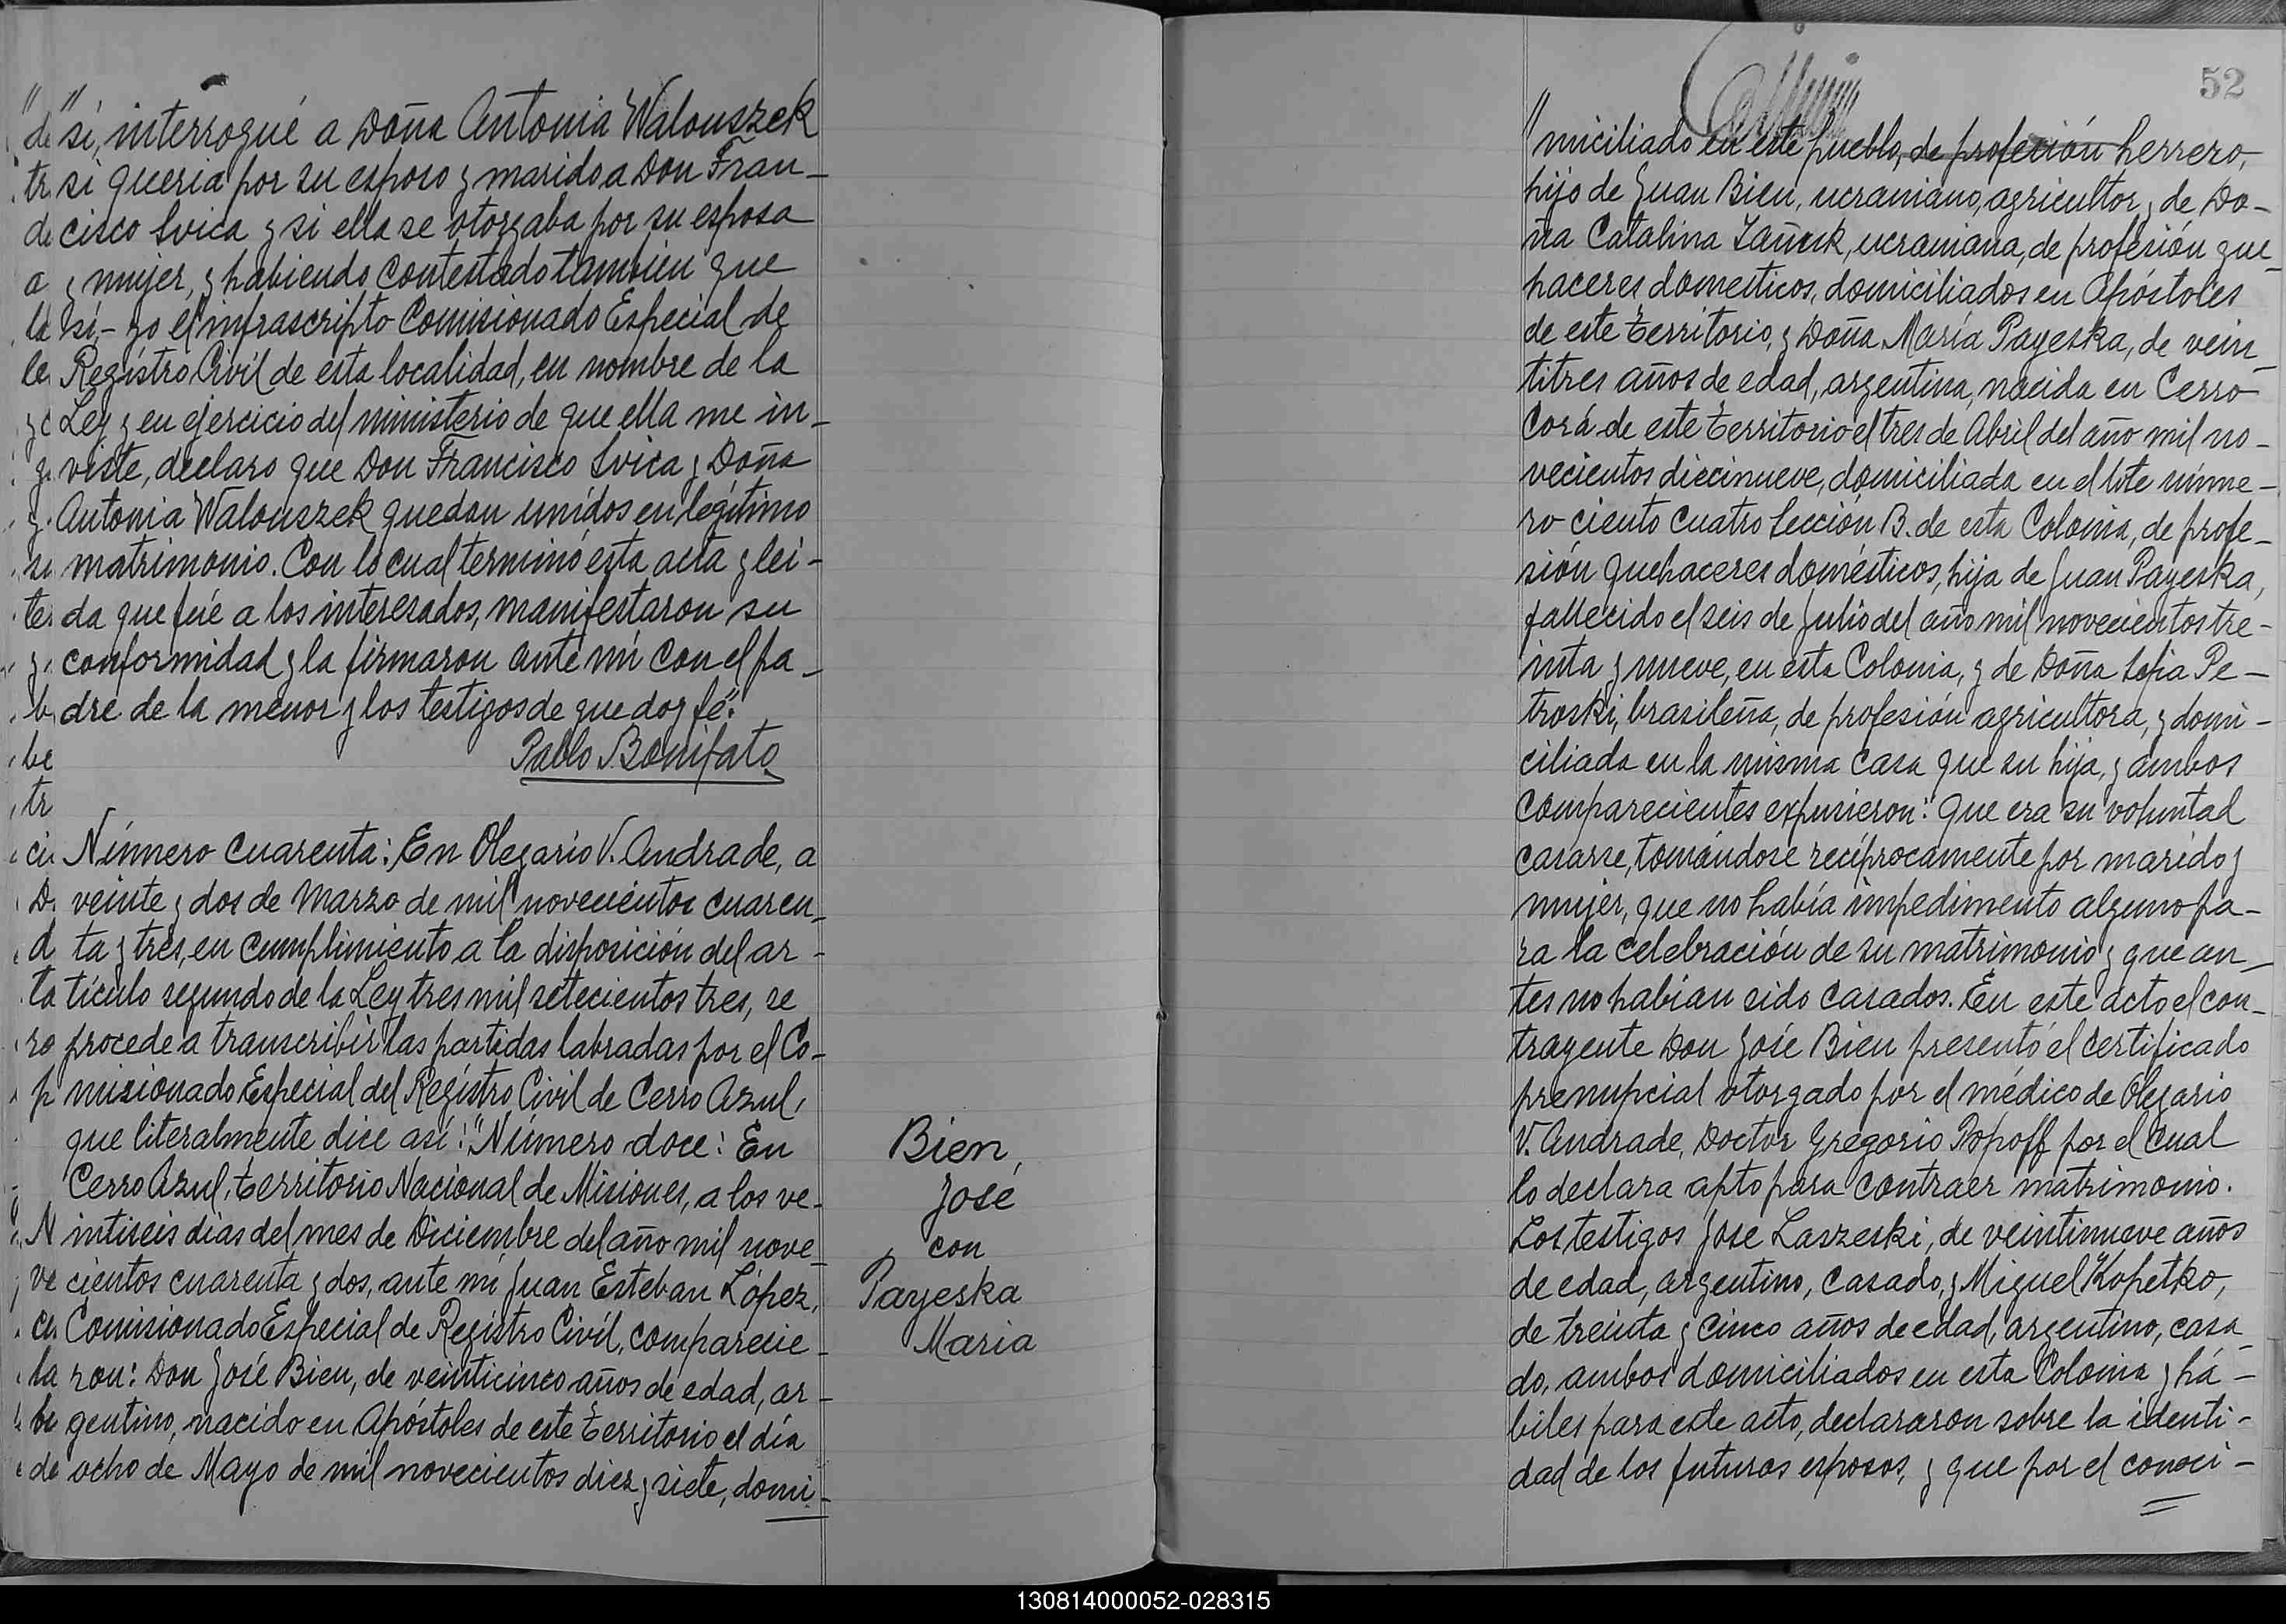 " sí, interrogué a Doña Antonia Walouszek
si queria por su esposo y marido a Don Fran-
cisco Svica y si ella se otorgaba por su esposa
y mujer, y habiendo contestado tambien que
sí,- yo el infrascripto Comisionado Especial de
Registro Civil de esta localidad, en nombre de la
Ley y en ejercicio del ministerio de que ella me in-
viste, declaro que Don Francisco Svica y Doña
Antonia Walouszek quedan unidos en legítimo
matrimonio. Con lo cual terminó esta acta y lei-
da que fué a los interesados, manifestaron su
conformidad y la firmaron ante mí con el pa-
dre de la menor y los testigos de que doy fé".
Pablo Bonifato
Número Cuarenta: En Olegario V. Andrade, a
veinte y dos de Marzo de mil novecientos cuaren-
ta y tres, en cumplimiento a la disposición del ar-
tículo segundo de la Ley tres mil setecientos tres, se
procede a transcribir las partidas labradas por el Co-
misionado Especial del Registro Civil de Cerro Azul,
que literalmente dice así: "Número doce: En
Cerro Azul, Territorio Nacional de Misiones, a los ve-
intiseis dias del mes de Diciembre del año mil nove-
cientos cuarenta y dos, ante mí Juan Esteban López,
Comisionado Especial de Registro Civil, comparecie-
ron: Don José Bien, de veinticinco años de edad, ar-
gentino, nacido en Apóstoles de este Territorio el día
ocho de Mayo de mil novecientos diez y siete, domi-
Bien,
José
con
Payeska
Maria
52
" miciliado en este pueblo, de profesión herrero,
hijo de Juan Bien, ucraniano, agricultor y de Do-
ña Catalina Yañuk, ucraniana, de profesión que-
haceres domesticos, domiciliados en Apóstoles
de este Territorio, y Doña María Payeska, de vein-
titres años de edad, argentina, nacida en Cerro
Corá de este Territorio el tres de Abril del año mil no-
vecientos diecinueve, domiciliada en el lote núme-
ro ciento cuatro Sección B. de esta Colonia, de profe-
sión quehaceres domésticos, hija de Juan Payeska,
fallecido el seis de Julio del año mil novecientos tre-
inta y nueve, en esta Colonia, y de Doña Sofia Pe-
troski, brasileña, de profesión agricultora, y domi-
ciliada en la misma casa que su hija, y ambos
comparecientes expusieron: Que era su voluntad
casarse, tomándose recíprocamente por marido y
mujer, que no había impedimento alguno pa-
ra la celebración de su matrimonio y que an-
tes no habian sido casados. En este acto el con-
trayente Don José Bien presentó el certificado
prenupcial otorgado por el médico de Olegario
V. Andrade, Doctor Gregorio Popoff por el cual
lo declara apto para contraer matrimonio.
Los testigos José Laszeski, de veintinueve años
de edad, argentino, casado, y Miguel Kopetko,
de treinta y cinco años de edad, argentino, casa-
do, ambos domiciliados en esta Colonia y há-
biles para este acto, declararon sobre la identi-
dad de los futuros esposos, y que por el conoci-
130814000052-028315